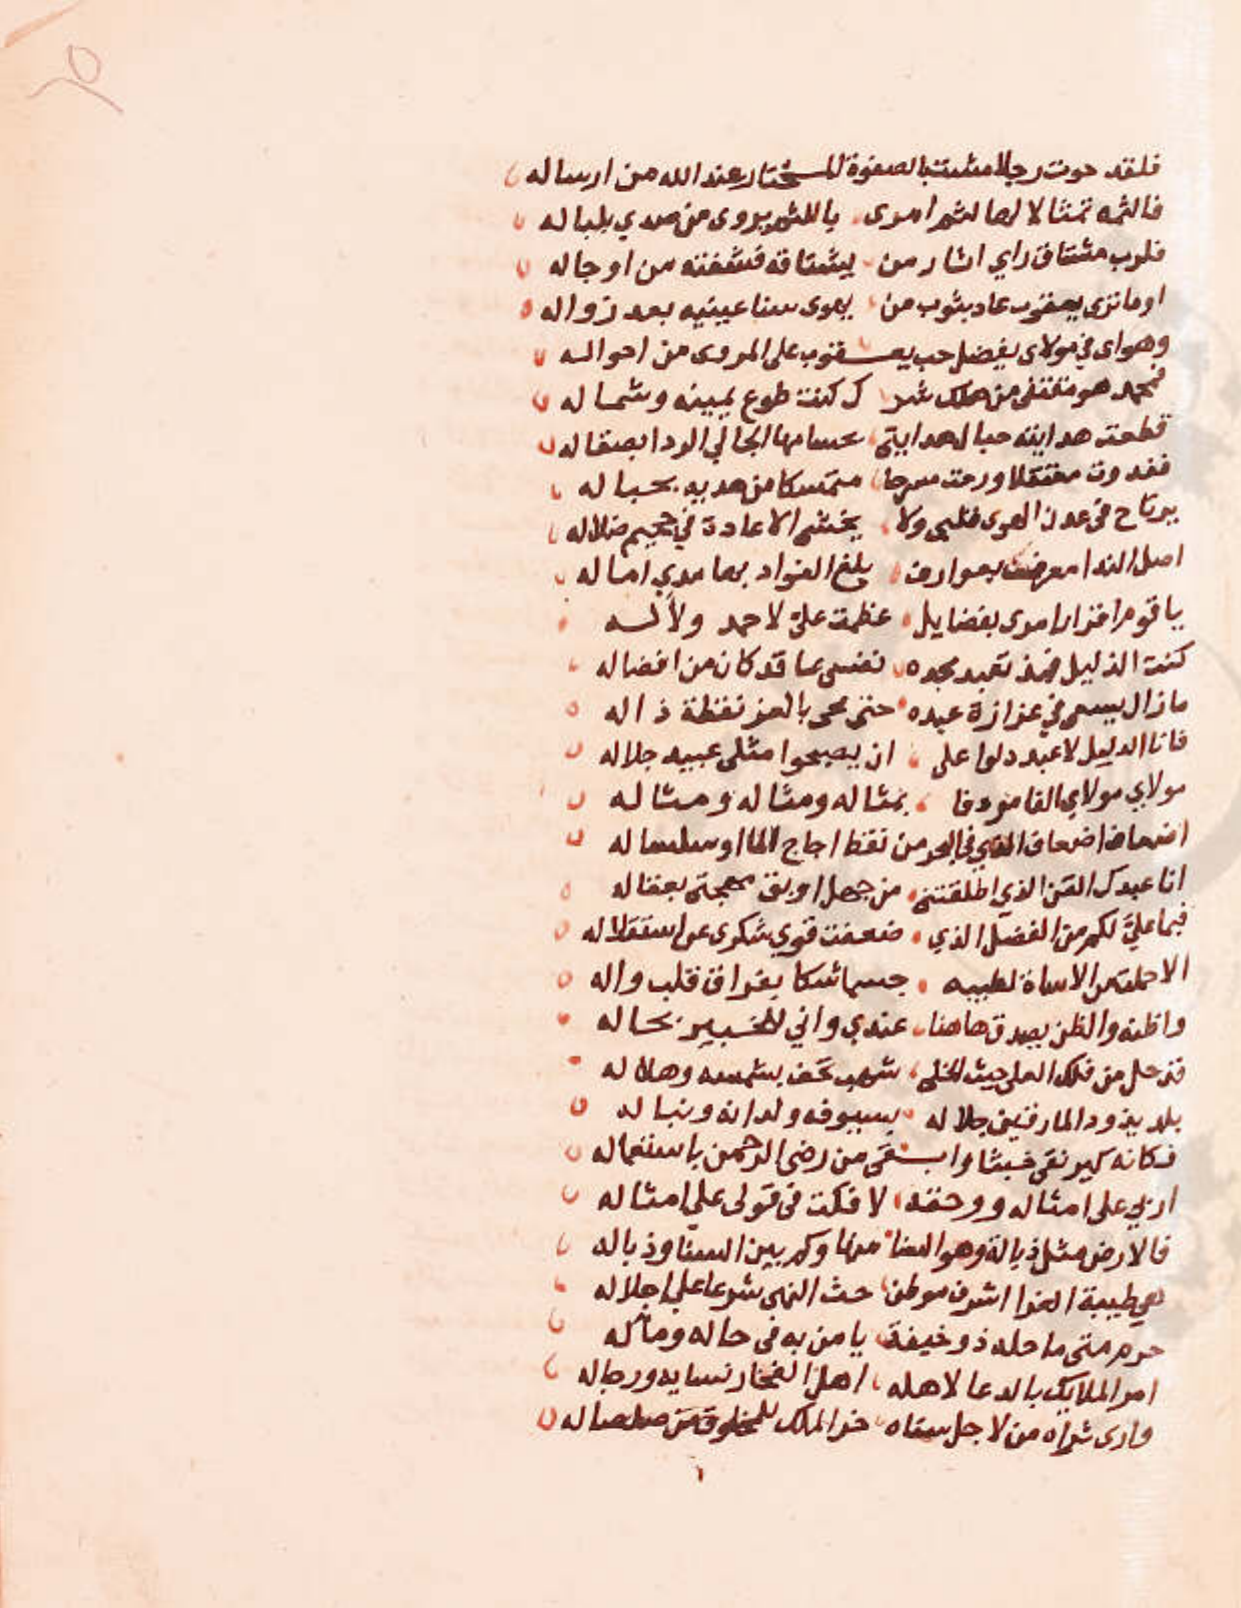 ٢٥
فلقد حوت رجلا مشت بالصفوة المختار عند الله من ارساله
فالثمه تمثالا لها لثم امرى باللثم يروى من صدي بلباله
فلرب مشتاق راي اثار من يشتاقه فشفته من اوجاله
اوما ترى يعقوب عاد بثوب من يهوى سنا عينيه بعد زواله
وهواى في مولاى يفضل حب يعقوب على المروى من احواله
فمحمد هو منقذى من هلك شرك كنت طوع يمينه وشماله
قطعت هدايته حبال هدايتى بحسامها الجالي الردا بصقاله
فغدوت معتقلا ورحت مسرحا متمسكا من هديه بحباله
يرتاح في عدن الهوى قلبى ولا يخشى الاعادة في جحيم ضلاله
اصل الندا بعوارف بلغ الفواد بها مدي اماله
يا قوم اقرار امرى بفضايل عظمت علىّ لاحمد ولآله
كنت الذليل فمذ تعبد مجده نفسى بما قد كان من افضاله
ما زال يسعى في عزازة عبده حتى محى بالعز نقطة ذاله
فانا الدليل لاعبد دلوا على ان يصبحوا مثلى عبيد جلاله
مولاي مولاي الفا مردفا بمثاله ومثاله ومثاله
اضعاف اضعاف الذي في البحر من نقط اجاج الما او سلساله
انا عبدك القن الذي اطلقتنى من جهل اوبق مهجتى بعقاله
فبما علىّ لكم من الفضل الذي ضعفت قوي شكرى عن استقلاله
الا حملت من الاساة لطيبه جسما شكا بفراق قلب واله
واظنه والظن يصدق هاهنا عندي واني للخبير بحاله
فتى حل من فلك العلى حيث انجلى شهب تحف بشمسه وهلاله
بلد يذود المارقين جلاله بسيوفه ولدانه ونباله
فكانه كير نقى خبثا وابقى من رضى الرحمن باستنعماله
اربي على امثاله ووحقه لا فكت في قولى على امثاله
فالارض مثل ذبالة وهو السنا منها وكم بين السنا وذباله
هي طيبة الغرا اشرف موطن حث النهى شرعا على اجلاله
حرم متى ما حله ذو خيفة يا من به في حاله ومآله
امر الملايك بالدعا لاهله اهل الفخار نسايه ورجاله
وارى ثراه من لاجل سناه خر الملك للمخلوق من صلصاله